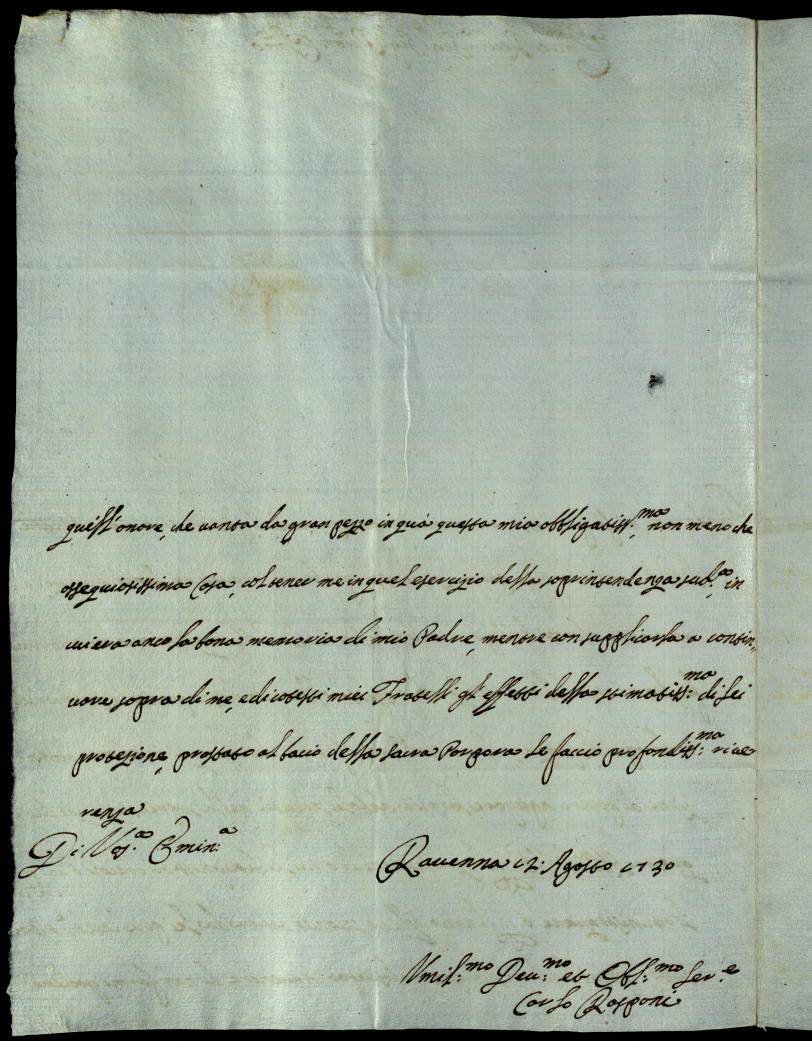 quest'onore, che vanta da gran pezzo in quà questa mia obbligatiss:ma, non meno che
ossequiosissima Casa, col tener me in quel esercizio della soprintendenza sud.a, in
cui era anco la bona memoria di mio Padre, mentre con supplicarla a contin,,
uare sopra di me, e di cotesti miei Fratelli gl'effetti della stimatiss:ma di Lei
protezione, prostato al bacio della Sacra Porpora Le faccio profondiss:ma rive
renza
Di Vos.a Emin.a
Ravenna 12. Agosto 1730
Umil:mo Deu:mo et Obl:mo Ser.e
Carlo Rasponi